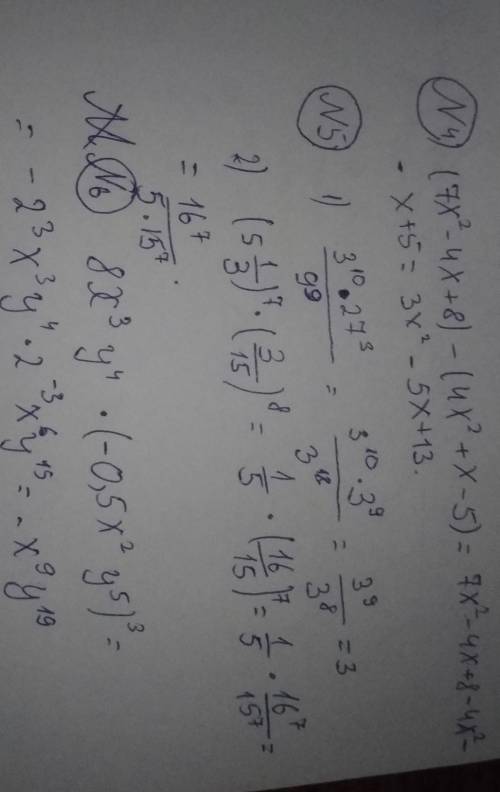 N4) (7x² - 4x + 8) - (4x² + x - 5) = 7x² - 4x + 8 - 4x² -
- x + 5 = 3x² - 5x + 13.
N5 1) \frac{3¹⁰ · 27³}{9⁹} = \frac{3¹⁰ · 3⁹}{3¹⁸} = \frac{3⁹}{3⁸} = 3
2) (5\frac{1}{3})⁷ · (\frac{3}{15})⁸ = \frac{1}{5} · (\frac{16}{15})⁷ = \frac{1}{5} · \frac{16⁷}{15⁷} =
= \frac{16⁷}{5 · 15⁷}.
N6 8x³y⁴ · (-0,5x²y⁵)³ =
= - 2³x³y⁴ · 2⁻³x⁶y¹⁵ = - x⁹y¹⁹